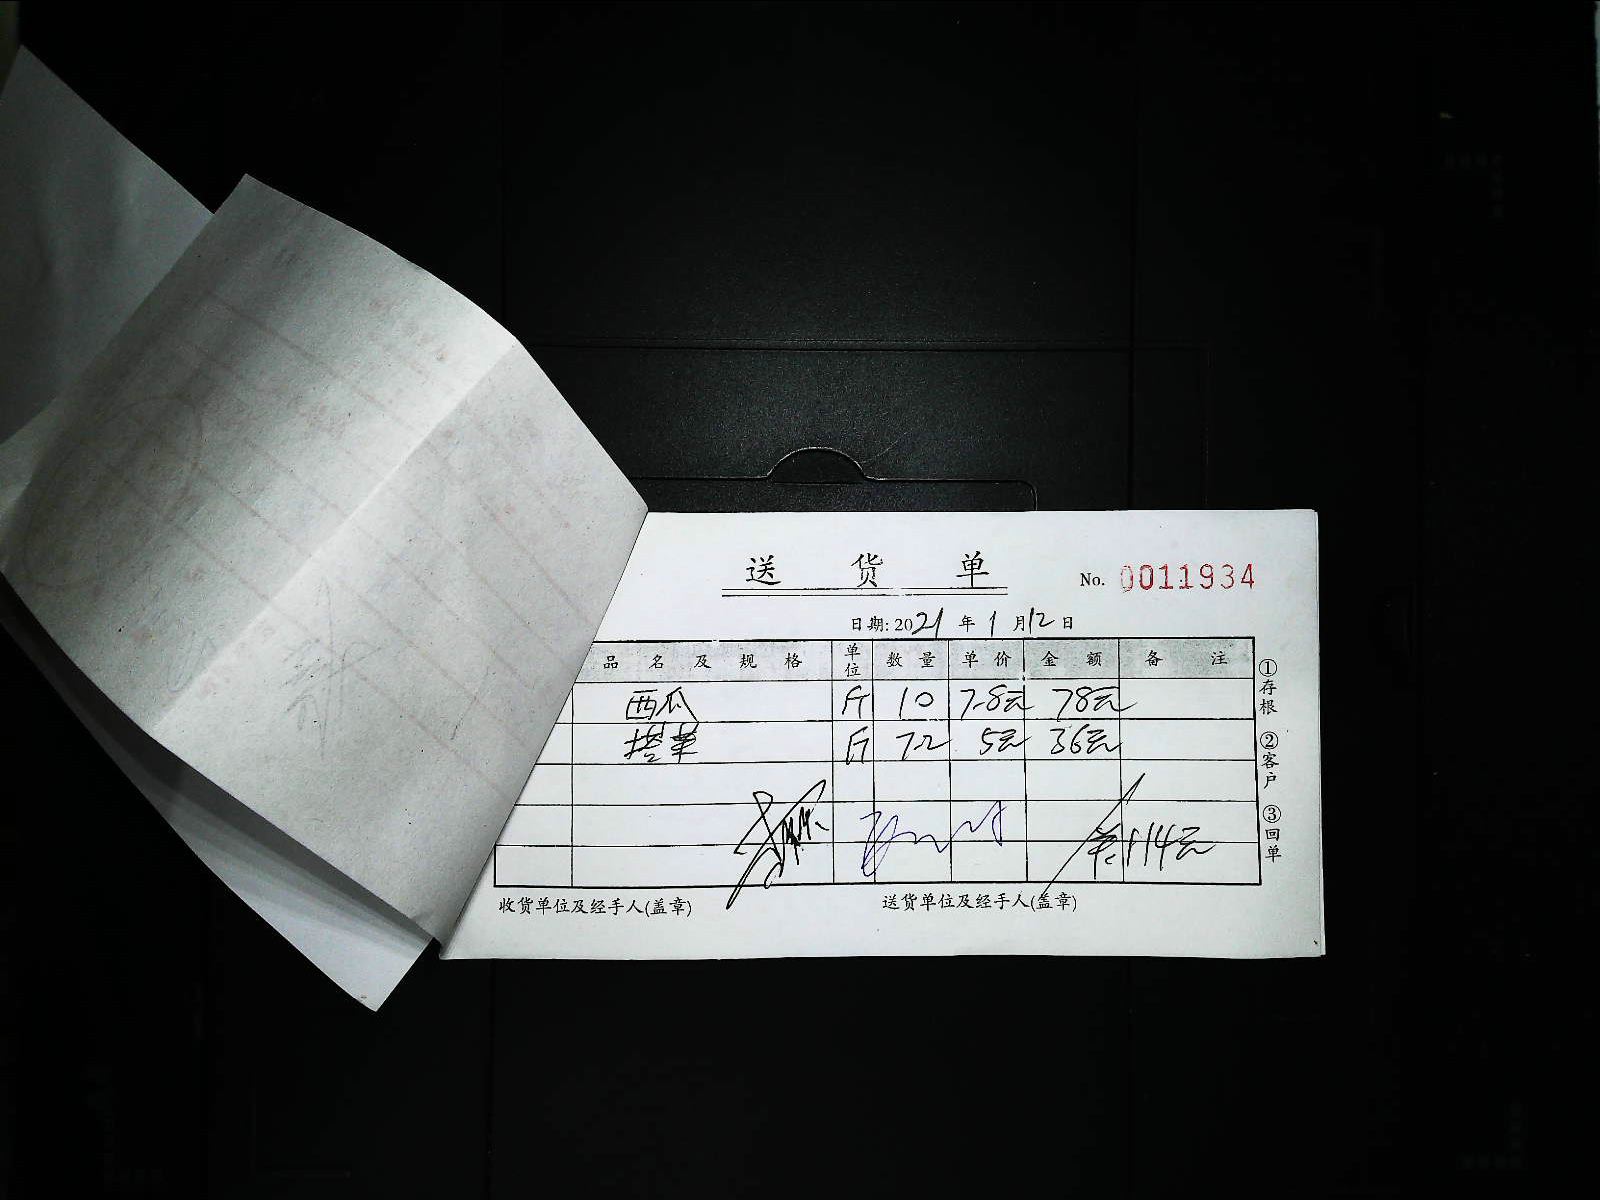 送 货 单
No. 0011934
日期: 2021 年 1 月 12 日
品 名 及 规 格 单位 数 量 单 价 金 额 备 注
西瓜 斤 10 7.8元 78元
斤 7.2 5元 36元
114元
收货单位及经手人(盖章) 送货单位及经手人(盖章)
①存根 ②客户 ③回单